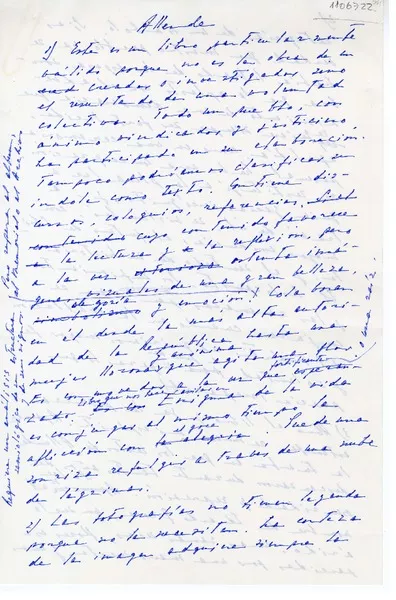 1106322
Allende
1) Este es un libro particularmente
válido porque no es la obra de un
creador o investigador sino
el resultado de una voluntad
colectiva. Todo un pueblo, con
ánimo vindicador y justiciero
ha participado en su elaboración.
Tampoco podríamos clasificar su
índole como texto. Contiene dis-
cursos, coloquios, referencias.
contenidos cuyo contenido favorece
a la lectura y a la reflexión, pero
a la vez ostenta imá-
genes visuales de una gran belleza,
alegoría
simbolismo y emoción. Colaboran
en él desde la más alta autori-
dad de la República hasta una
mujer que agita una flor
o una raíz.
fortificante
zado. Enigma de la vida
es conjugar al mismo tiempo la
aflicción con la alegría. Puede una
sonrisa refulgir a través de una nube
de lágrimas.
2) Las fotografías no tienen leyenda
porque no la necesitan. La certeza
de la imagen adquiere siempre la
Requiere un análisis
semiológico de